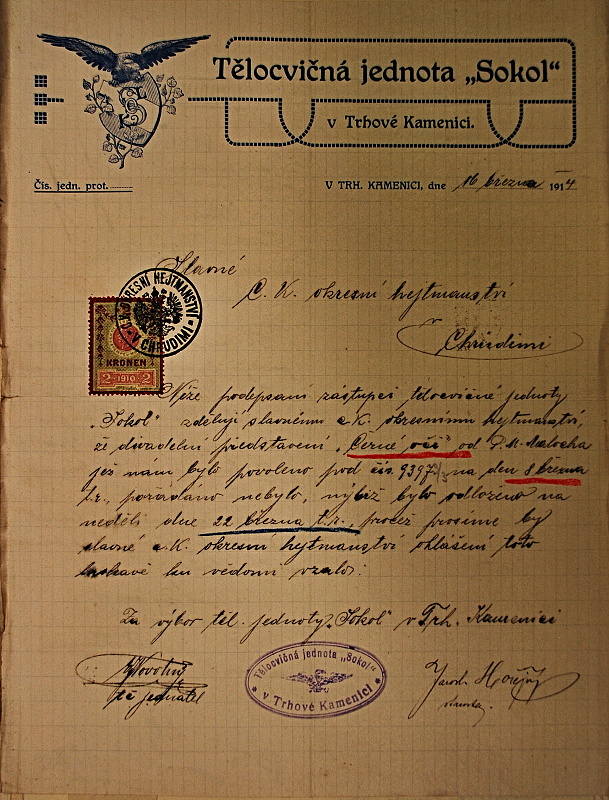 Tělocvičná jednota „Sokol"
v Trhové Kamenici.
Čís. jedn. prot.
V TRH. KAMENICI, dne 16 března 1914
Slavné
C. K. okresní hejtmanství
v
Chrudimi
C.K. OKRESNÍ HEJTMANSTVÍ V CHRUDIMI
KRONEN
2 1910 2
Níže podepsaní zástupci tělocvičné jednoty
„Sokol" zdělují slavnému c. K. okresnímu hejtmanství,
že divadelní představení „Černé oči" od
jež nám bylo povoleno pod čís. 9397 na den 8 března
t.r., pořádáno nebylo, nýbrž bylo odloženo na
neděli dne 22 března t.r., pročež prosíme by
slavné c. K. okresní hejtmanství ohlášení toto
laskavě ku vědomí vzalo:
Za výbor těl. jednoty „Sokol" v Trh. Kamenici
Novotný
jednatel
Tělocvičná jednota „Sokol"
v Trhové Kamenici
Jarosl. Horějš
starosta.